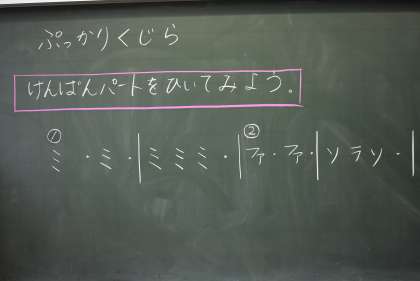 ぷっかりくじら
けんばんパートをひいてみよう。
① ②
ミ・ミ・|ミミミ・|ファ・ファ・|ソラソ・|